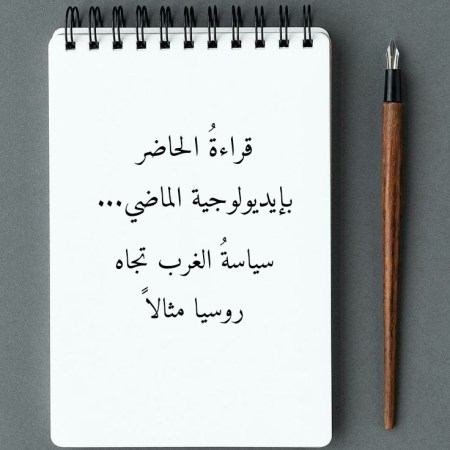 قراءةُ الحاضر
بإيديولوجية الماضي...
سياسةُ الغرب تجاه
روسيا مثالاً